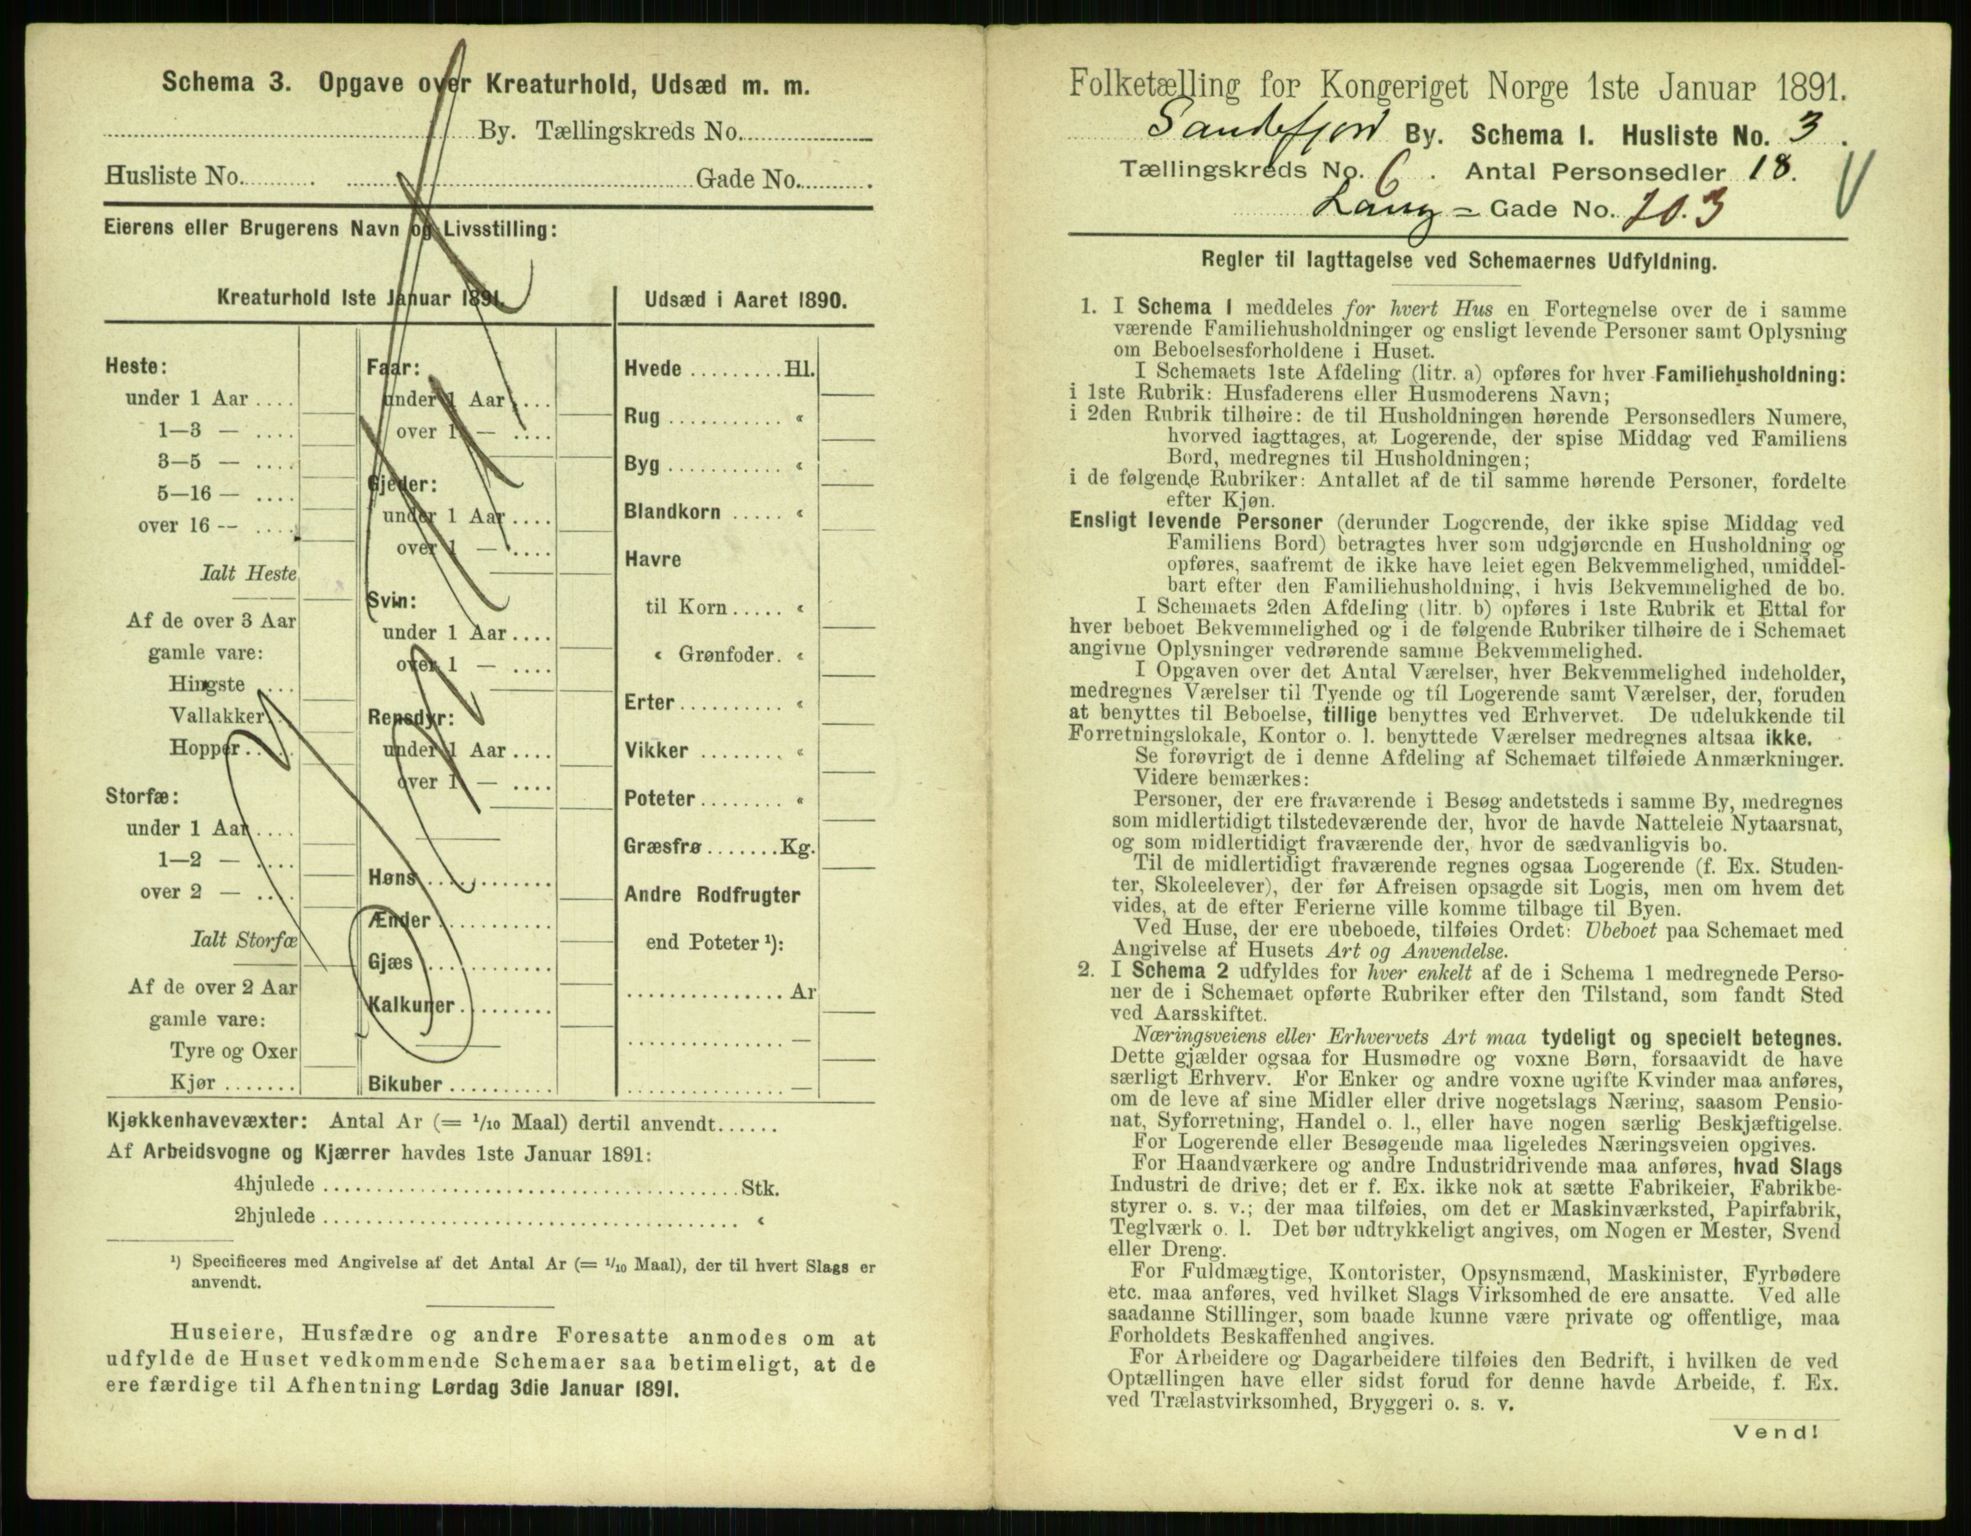 Schema 3. Opgave over Kreaturhold, Udsæd m. m.
By. Tællingskreds No.
Husliste No. Gade No.
Eierens eller Brugerens Navn og Livsstilling:
Kreaturhold 1ste Januar 1891.
Heste:
under 1 Aar
1—3 —
3—5 —
5—16 —
over 16 —
Ialt Heste
Af de over 3 Aar
gamle vare:
Hingste
Vallakker
Hopper
Storfæ:
under 1 Aar
1—2 —
over 2 —
Ialt Storfæ
Af de over 2 Aar
gamle vare:
Tyre og Oxer
Kjør
Faar:
under 1 Aar
over 1 —
Gjeder:
under 1 Aar
over 1 —
Svin:
under 1 Aar
over 1 —
Rensdyr:
under 1 Aar
over 1 —
Høns
Ænder
Gjæs
Kalkuner
Bikuber
Udsæd i Aaret 1890.
Hvede Hl.
Rug «
Byg «
Blandkorn «
Havre
til Korn «
« Grønfoder. «
Erter «
Vikker «
Poteter «
Græsfrø Kg.
Andre Rodfrugter
end Poteter ¹):
Ar
—
—
Kjøkkenhavevæxter: Antal Ar (= 1/10 Maal) dertil anvendt......
Af Arbeidsvogne og Kjærrer havdes 1ste Januar 1891:
4hjulede Stk.
2hjulede «
¹) Specificeres med Angivelse af det Antal Ar (= 1/10 Maal), der til hvert Slags er
anvendt.
Huseiere, Husfædre og andre Foresatte anmodes om at
udfylde de Huset vedkommende Schemaer saa betimeligt, at de
ere færdige til Afhentning Lørdag 3die Januar 1891.
Folketælling for Kongeriget Norge 1ste Januar 1891.
Sandefjord By. Schema I. Husliste No. 3.
Tællingskreds No. 6. Antal Personsedler 18.
Lang = Gade No. 203
Regler til Iagttagelse ved Schemaernes Udfyldning.
1. I Schema 1 meddeles for hvert Hus en Fortegnelse over de i samme
værende Familiehusholdninger og ensligt levende Personer samt Oplysning
om Beboelsesforholdene i Huset.
I Schemaets 1ste Afdeling (litr. a) opføres for hver Familiehusholdning:
i 1ste Rubrik: Husfaderens eller Husmoderens Navn;
i 2den Rubrik tilhøire: de til Husholdningen hørende Personsedlers Numere,
hvorved iagttages, at Logerende, der spise Middag ved Familiens
Bord, medregnes til Husholdningen;
i de følgende Rubriker: Antallet af de til samme hørende Personer, fordelte
efter Kjøn.
Ensligt levende Personer (derunder Logerende, der ikke spise Middag ved
Familiens Bord) betragtes hver som udgjørende en Husholdning og
opføres, saafremt de ikke have leiet egen Bekvemmelighed, umiddel-
bart efter den Familiehusholdning, i hvis Bekvemmelighed de bo.
I Schemaets 2den Afdeling (litr. b) opføres i 1ste Rubrik et Ettal for
hver beboet Bekvemmelighed og i de følgende Rubriker tilhøire de i Schemaet
angivne Oplysninger vedrørende samme Bekvemmelighed.
I Opgaven over det Antal Værelser, hver Bekvemmelighed indeholder,
medregnes Værelser til Tyende og til Logerende samt Værelser, der, foruden
at benyttes til Beboelse, tillige benyttes ved Erhvervet. De udelukkende til
Forretningslokale, Kontor o. l. benyttede Værelser medregnes altsaa ikke.
Se forøvrigt de i denne Afdeling af Schemaet tilføiede Anmærkninger.
Videre bemærkes:
Personer, der ere fraværende i Besøg andetsteds i samme By, medregnes
som midlertidigt tilstedeværende der, hvor de havde Natteleie Nytaarsnat,
og som midlertidigt fraværende der, hvor de sædvanligvis bo.
Til de midlertidigt fraværende regnes ogsaa Logerende (f. Ex. Studen-
ter, Skoleelever), der før Afreisen opsagde sit Logis, men om hvem det
vides, at de efter Ferierne ville komme tilbage til Byen.
Ved Huse, der ere ubeboede, tilføies Ordet: Ubeboet paa Schemaet med
Angivelse af Husets Art og Anvendelse.
2. I Schema 2 udfyldes for hver enkelt af de i Schema 1 medregnede Perso-
ner de i Schemaet opførte Rubriker efter den Tilstand, som fandt Sted
ved Aarsskiftet.
Næringsveiens eller Erhvervets Art maa tydeligt og specielt betegnes.
Dette gjælder ogsaa for Husmødre og voxne Børn, forsaavidt de have
særligt Erhverv. For Enker og andre voxne ugifte Kvinder maa anføres,
om de leve af sine Midler eller drive nogetslags Næring, saasom Pensio-
nat, Syforretning, Handel o. l., eller have nogen særlig Beskjæftigelse.
For Logerende eller Besøgende maa ligeledes Næringsveien opgives.
For Haandværkere og andre Industridrivende maa anføres, hvad Slags
Industri de drive; det er f. Ex. ikke nok at sætte Fabrikeier, Fabrikbe-
styrer o. s. v.; der maa tilføies, om det er Maskinværksted, Papirfabrik,
Teglværk o. l. Det bør udtrykkeligt angives, om Nogen er Mester, Svend
eller Dreng.
For Fuldmægtige, Kontorister, Opsynsmænd, Maskinister, Fyrbødere
etc. maa anføres, ved hvilket Slags Virksomhed de ere ansatte. Ved alle
saadanne Stillinger, som baade kunne være private og offentlige, maa
Forholdets Beskaffenhed angives.
For Arbeidere og Dagarbeidere tilføies den Bedrift, i hvilken de ved
Optællingen have eller sidst forud for denne havde Arbeide, f. Ex.
ved Trælastvirksomhed, Bryggeri o. s. v.
Vend!